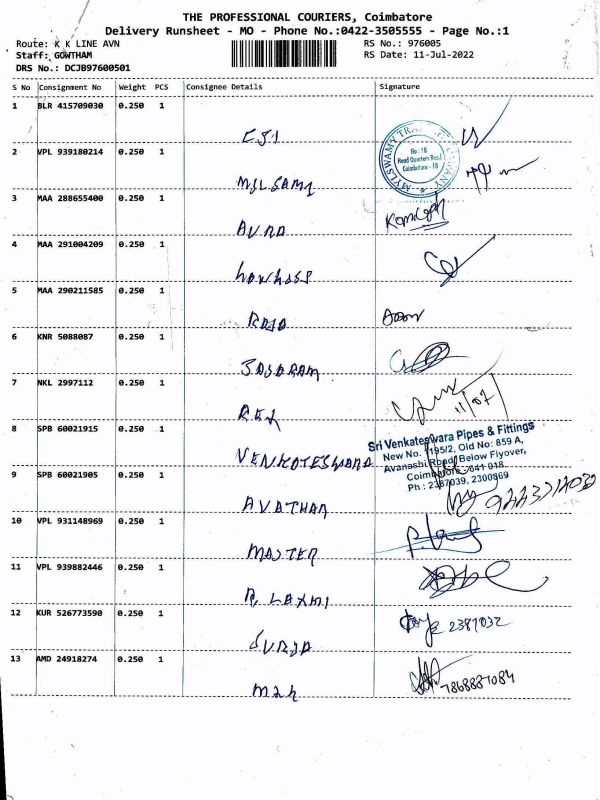 THE PROFESSIONAL COURIERS, Coimbatore
Delivery Runsheet - MO - Phone No.:0422-3505555 - Page No.:1
Route: K K LINE AVN
RS No.: 976005
Staff: GOWTHAM
RS Date: 11-Jul-2022
DRS No.: DCJB97600501
S No Consignment No Weight PCS Consignee Details Signature
1 BLR 415709030 0.250 1
CSI
MYLSWAMY TRA
No : 18
Head Quarters Road
Coimbatore - 18
2 VPL 939180214 0.250 1
MYLSAMY
3 MAA 288655400 0.250 1
AVRA
4 MAA 291004209 0.250 1
5 MAA 290211585 0.250 1
ROJA
6 KNR 5088087 0.250 1
7 NKL 2997112 0.250 1
11/07
8 SPB 60021915 0.250 1
VENKATESWARA
Sri Venkateswara Pipes & Fittings
New No. 195/2, Old No: 859 A,
Avanashi Road, Below Flyover,
Coimbatore - 641 018.
Ph : 2387039, 2300869
9 SPB 60021905 0.250 1
AVATHAR
10 VPL 931148969 0.250 1
MASTER
11 VPL 939882446 0.250 1
R. LAXMI
12 KUR 526773590 0.250 1
SURYA
2387032
13 AMD 24918274 0.250 1
7868887084